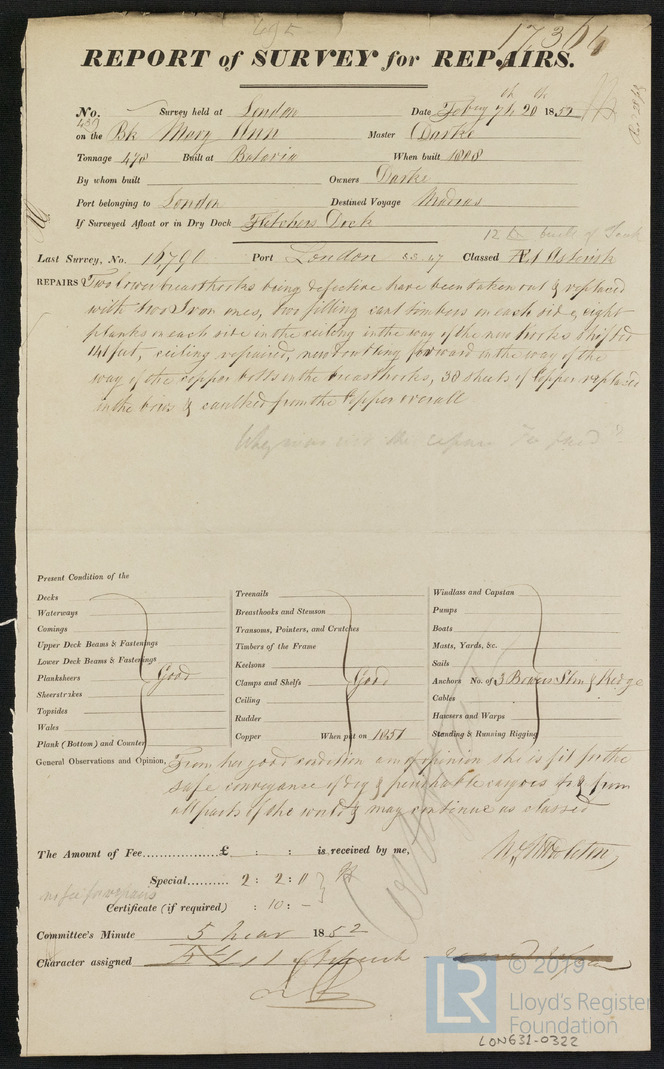 17366
REPORT of SURVEY for REPAIRS.
No. 437 Survey held at London Date Feby 7th 20th 1852
on the Bk Mary Ann Master Darke
Tonnage 478 Built at Batavia When built 1808
By whom built Owners Darke
Port belonging to London Destined Voyage Madras
If Surveyed Afloat or in Dry Dock Fletchers Dock
12 built of Teak
Last Survey, No. 16790 Port London Classed Æ1 Asterisk
REPAIRS Two lower breasthooks being defective have been taken out & replaced
with two Iron ones, two filling cant timbers on each side, eight
planks on each side in the ceiling in the way of the new hooks shifted
ceiling repaired, new forward in the way of the
way of the copper bolts in the breasthooks, 30 sheets of Copper replaced
in the bows & caulked from the Copper overall
Why was not the repair Fee paid?
Present Condition of the
Decks
Waterways
Comings
Upper Deck Beams & Fastenings
Lower Deck Beams & Fastenings
Planksheers Good
Sheerstrakes
Topsides
Wales
Plank (Bottom) and Counter
Treenails
Breasthooks and Stemson
Transoms, Pointers, and Crutches
Timbers of the Frame
Keelsons
Clamps and Shelfs Good
Ceiling
Rudder
Copper When put on 1851
Windlass and Capstan
Pumps
Boats
Masts, Yards, &c.
Sails
Anchors No. of 3 Bowers Stm & Kedge
Cables
Hawsers and Warps
Standing & Running Rigging
General Observations and Opinion, From her good condition am of opinion she is fit for the
safe conveyance of dry & perishable cargoes to & from
all parts of the world & may continue as classed
The Amount of Fee £ : : is received by me,
Special 2 : 2 : 0
no fee for repairs
Certificate (if required) : 10 : –
Committee's Minute 5 Mar 1852
Character assigned
© 2019
LR Lloyd's Register
Foundation
LON631-0322